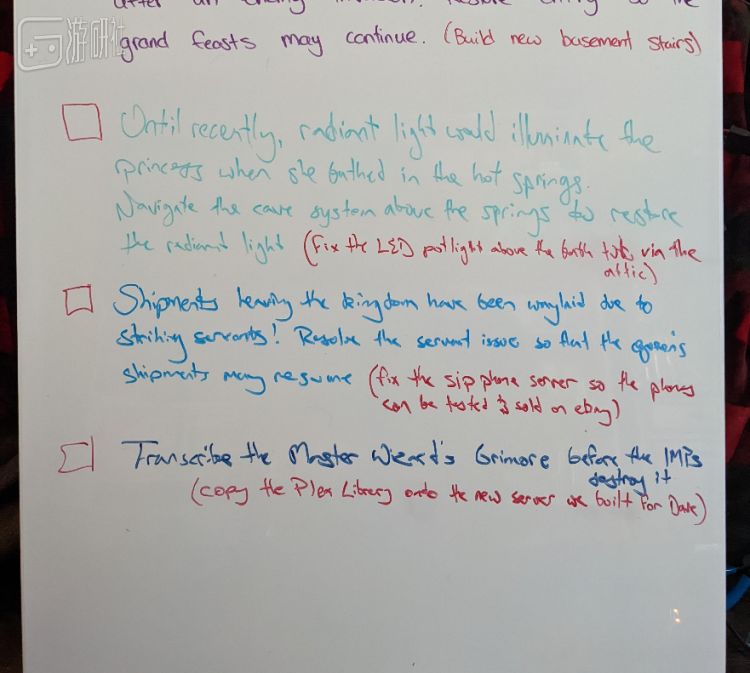 游研社
after an
grand feasts may continue. (Build new basement stairs)
Until recently, radiant light would illuminate the
princess when she bathed in the hot springs.
Navigate the cave system above the springs to restore
the radiant light (fix the LED potlight above the bath tub via the
attic)
Shipments leaving the kingdom have been waylaid due to
striking servants! Resolve the servant issue so that the queen's
shipments may resume (fix the sip phone server so the phones
can be tested & sold on ebay)
Transcribe the Master Wizard's Grimore before the IMPs
destroy it
(copy the Plex Library onto the new server we built for Dave)